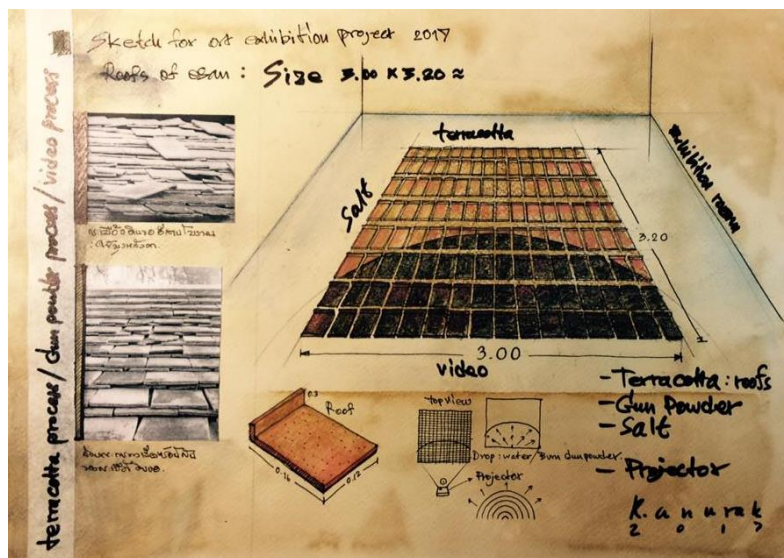 terracotta process / Gun powder process / video process
Sketch for art exhibition project 2017
Roofs of esan : Size 3.00 x 3.20 ≈
terracotta
Salt
exhibition room
3.20
3.00
video
0.3
Roof
0.16
0.12
top view
Drop : water / Burn Gunpowder.
Projector
- Terracotta : roofs
- Gun Powder
- Salt
- Projector
K. anurak
2017